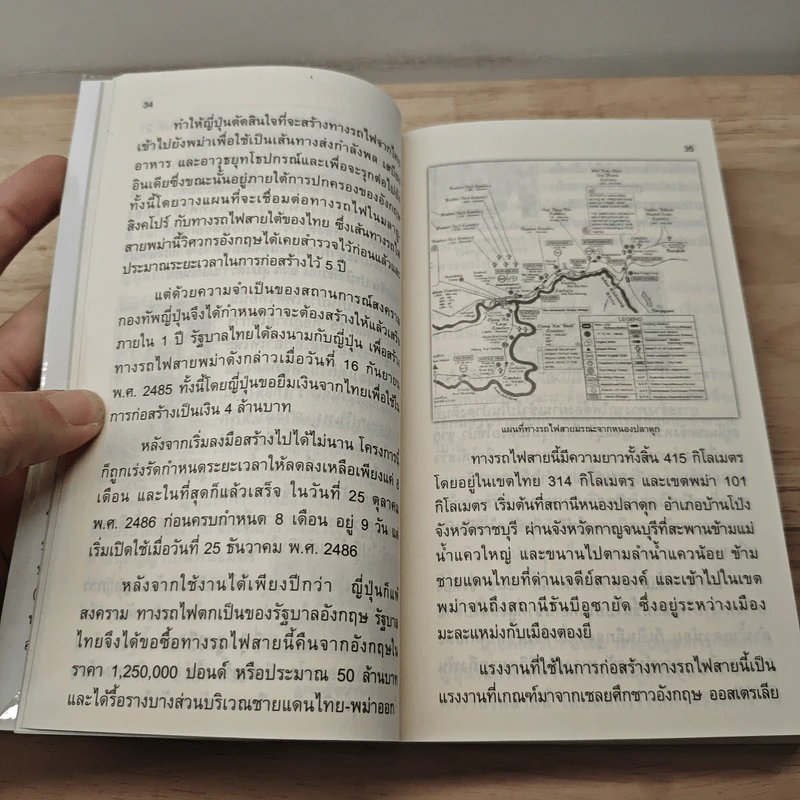 34
ทำให้ญี่ปุ่นตัดสินใจที่จะสร้างทางรถไฟจาก
เข้าไปยังพม่าเพื่อใช้เป็นเส้นทางส่งกำลังพล
อาหาร และอาวุธยุทโธปกรณ์และเพื่อจะรุกต่อไป
อินเดียซึ่งขณะนั้นอยู่ภายใต้การปกครองของอังกฤษ
ทั้งนี้โดยวางแผนที่จะเชื่อมต่อทางรถไฟใน
สิงคโปร์ กับทางรถไฟสายใต้ของไทย ซึ่งเส้นทางรถไฟ
สายพม่านี้วิศวกรอังกฤษได้เคยสำรวจไว้ก่อนแล้ว
ประมาณระยะเวลาในการก่อสร้างไว้ 5 ปี
แต่ด้วยความจำเป็นของสถานการณ์สงคราม
กองทัพญี่ปุ่นจึงได้กำหนดว่าจะต้องสร้างให้แล้วเสร็จ
ภายใน 1 ปี รัฐบาลไทยได้ลงนามกับญี่ปุ่น เพื่อสร้าง
ทางรถไฟสายพม่าดังกล่าวเมื่อวันที่ 16 กันยายน
พ.ศ. 2485 ทั้งนี้โดยญี่ปุ่นขอยืมเงินจากไทยเพื่อใช้ใน
การก่อสร้างเป็นเงิน 4 ล้านบาท
หลังจากเริ่มลงมือสร้างไปได้ไม่นาน โครงการนี้
ก็ถูกเร่งรัดกำหนดระยะเวลาให้ลดลงเหลือเพียงแค่ 8
เดือน และในที่สุดก็แล้วเสร็จ ในวันที่ 25 ตุลาคม
พ.ศ. 2486 ก่อนครบกำหนด 8 เดือน อยู่ 9 วัน
เริ่มเปิดใช้เมื่อวันที่ 25 ธันวาคม พ.ศ. 2486
หลังจากใช้งานได้เพียงปีกว่า ญี่ปุ่นก็แพ้
สงคราม ทางรถไฟตกเป็นของรัฐบาลอังกฤษ รัฐบาล
ไทยจึงได้ขอซื้อทางรถไฟสายนี้คืนจากอังกฤษใน
ราคา 1,250,000 ปอนด์ หรือประมาณ 50 ล้านบาท
และได้รื้อรางบางส่วนบริเวณชายแดนไทย-พม่าออก
35
LEGEND
แผนที่ทางรถไฟสายมรณะจากหนองปลาดุก
ทางรถไฟสายนี้มีความยาวทั้งสิ้น 415 กิโลเมตร
โดยอยู่ในเขตไทย 314 กิโลเมตร และเขตพม่า 101
กิโลเมตร เริ่มต้นที่สถานีหนองปลาดุก อำเภอบ้านโป่ง
จังหวัดราชบุรี ผ่านจังหวัดกาญจนบุรีที่สะพานข้ามแม่
น้ำแควใหญ่ และขนานไปตามลำน้ำแควน้อย ข้าม
ชายแดนไทยที่ด่านเจดีย์สามองค์ และเข้าไปในเขต
พม่าจนถึงสถานีธันบีอูซายัด ซึ่งอยู่ระหว่างเมือง
มะละแหม่งกับเมืองตองยี
แรงงานที่ใช้ในการก่อสร้างทางรถไฟสายนี้เป็น
แรงงานที่เกณฑ์มาจากเชลยศึกชาวอังกฤษ ออสเตรเลีย